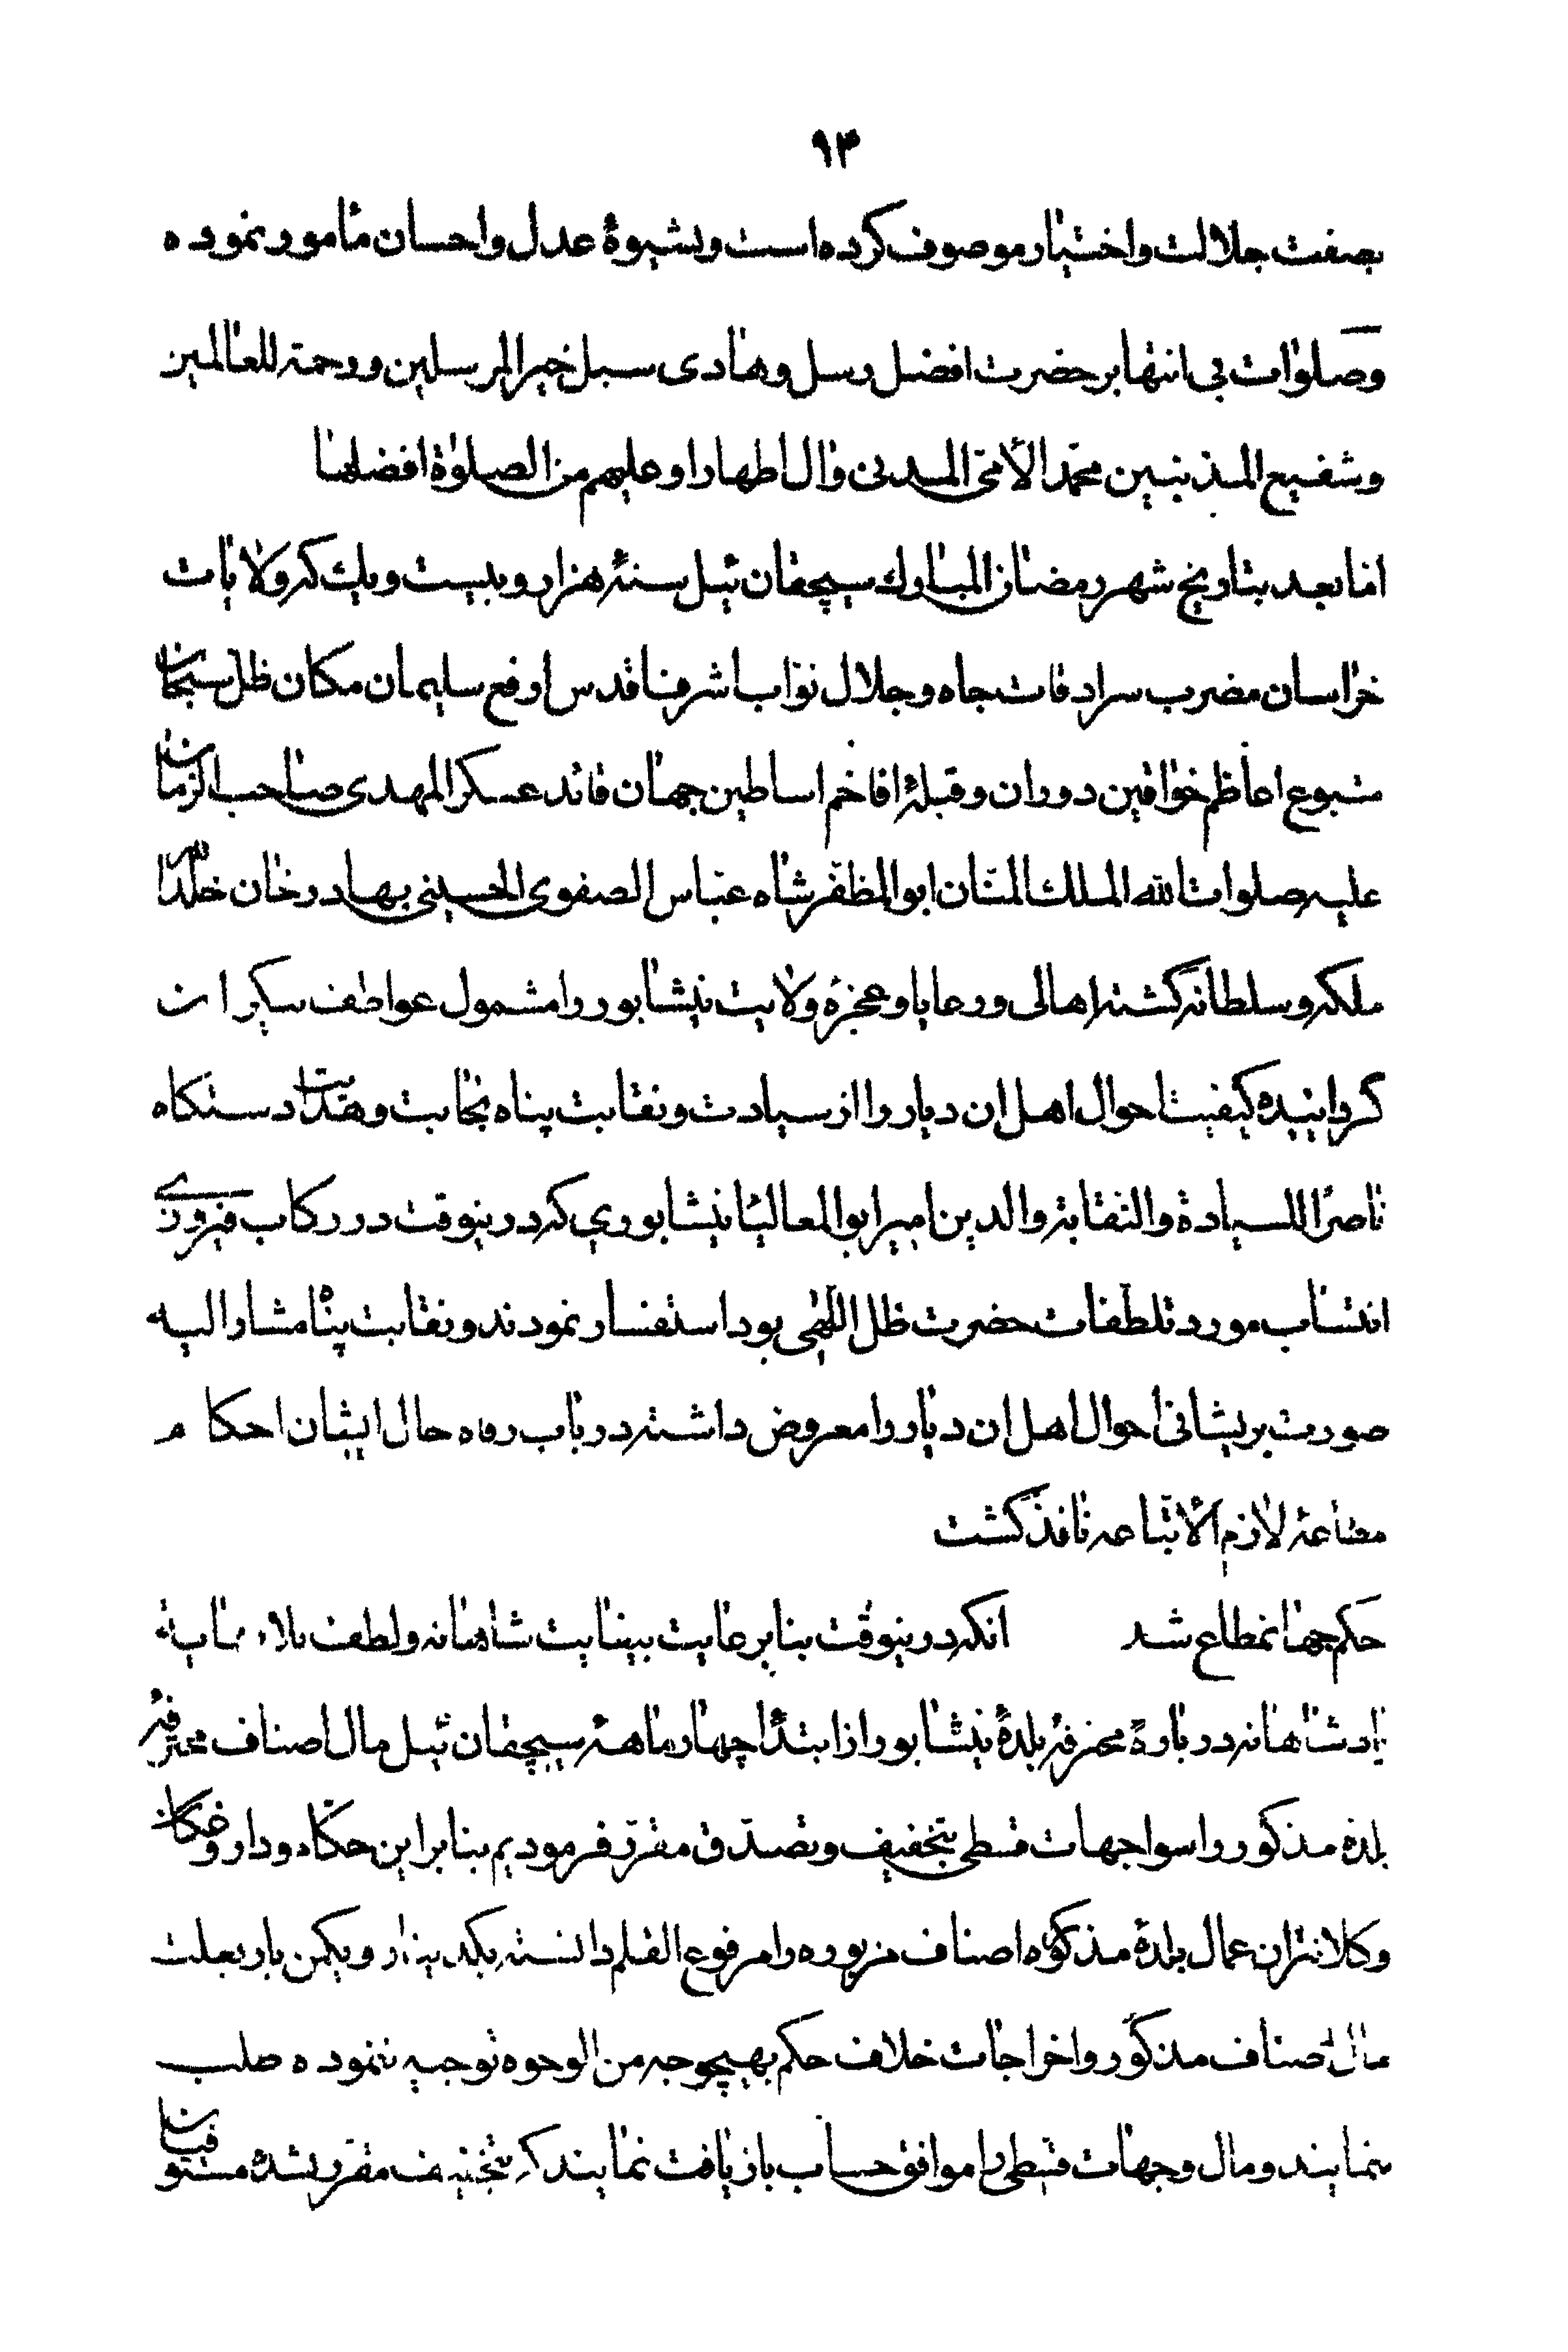 ۹۴
بصفت جلالت و اختیار موصوف کرده است و بشیوهٔ عدل و احسان مأمور نموده
وصلوات بی انتها بر حضرت افضل رسل و هادی سبل خیر المرسلین و رحمة للعالمین
و شفیع المذنبین محمّد الأمّی المدنی و ال اطهار او علیهم من الصلوٰة افضلها
اما بعد بتاریخ شهر رمضان المبارك سیچقان ئیل سنهٔ هزار و بیست و یك که ولایات
خراسان مضرب سرادقات جاه و جلال نوّاب اشرف اقدس ارفع سلیمان مکان ظل سبحان
متبوع اعاظم خواقین دوران و قبلهٔ افاخم اساطین جهان قائد عسکر المهدی صاحب الزمان
علیه صلوات الله الملك المنّان ابو المظفّر شاه عبّاس الصفوی الحسینی بهادر خان خلّد الله
ملکه و سلطانه گشته اهالی و رعایا و عجزهٔ ولایت نیشابور را مشمول عواطف بیکران
گردانیده کیفیت احوال اهل ان دیار را از سیادت و نقابت پناه نجابت و هدایت دستکاه
ناصرًا للسیادة والنقابة والدین امیر ابو المعالیا نیشابوری که درینوقت در رکاب فیروزی
انتساب مورد تلطّفات حضرت ظل اللهی بود استفسار نمودند و نقابت پناه مشار الیه
صورت بریشانی احوال اهل ان دیار را معروض داشته در باب رفاه حال ایشان احکام
مطاعهٔ لازم الأتباعه نافذ گشت
حکم جهانمطاع شد انکه درینوقت بنا بر عنایت بیغایت شاهانه و لطف بلا نهایه
پادشاهانه در بارهٔ محترفهٔ بلدهٔ نیشابور از ابتدأ چهار ماههٔ سیچقان ئیل مال اصناف محترفهٔ
بلدهٔ مذکور را سوا جهات قسطی بتخفیف و تصدّق مقرّر فرمودیم بنابراین حکّام و داروغکان
و کلانتران عمال بلدهٔ مذکوره اصناف مزبوره را مرفوع القلم دانسته یکدینار و یکمن بار بعلت
مال اصناف مذکور و اخراجات خلاف حکم بهیچوجه من الوجوه توجیه ننموده طلب
ننمایند و مال وجهات قسطی را موافق حساب بازیافت نمایند که بتخفیف مقرر شده مستوفیان